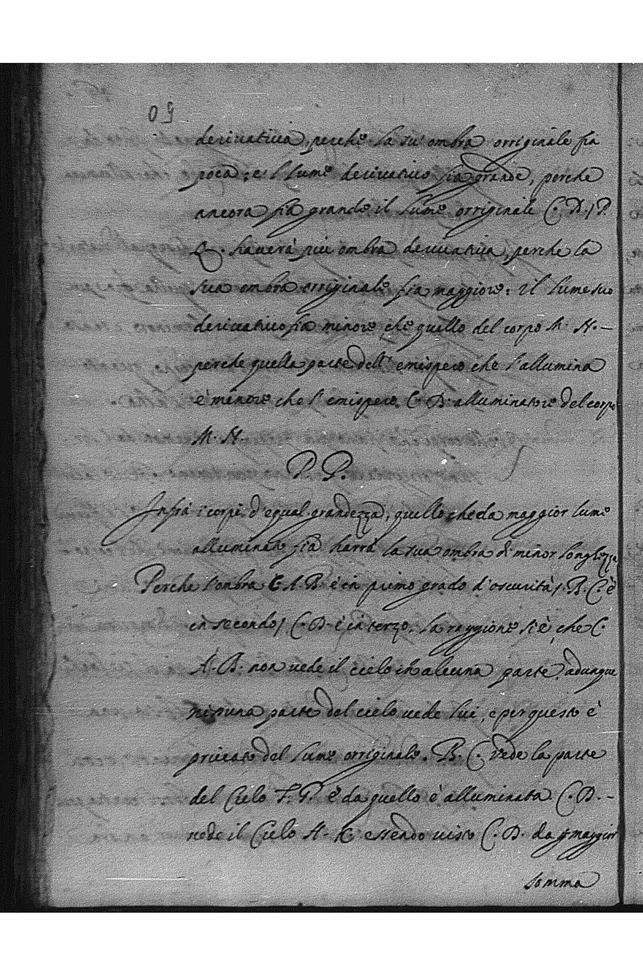 09
derivativa, perche la su' ombra originale fia
poca: e 'l lume derivativo fia grande, perche
ancora fia grande il lume originale C. D. / P.
haverà più ombra derivativa, perche la
sua ombra originale fia maggiore: il lume suo
derivativo fia minore che quello del corpo M. N. –
perche quella parte dell' emispero che l'allumina
è minore che l'emispero C. D. alluminatore del corpo
M. N.
P. P.
Infrà i corpi d'equal grandezza, quello che da maggior lume
alluminato fia harrà la sua ombra di minor longhezza
Perche l'ombra E A B è in primo grado d'oscurità / B. C. è
in secondo / C. D. è in terzo. la raggione si è, che C.
A. B. non vede il cielo in alcuna parte, adunque
nissuna parte del cielo vede lui, e per questo è
privato del lume originale. B. C. vede la parte
del Cielo F. P. e da quello è alluminata C. D. –
vede il Cielo H. K essendo visto C. D. da maggior
somma